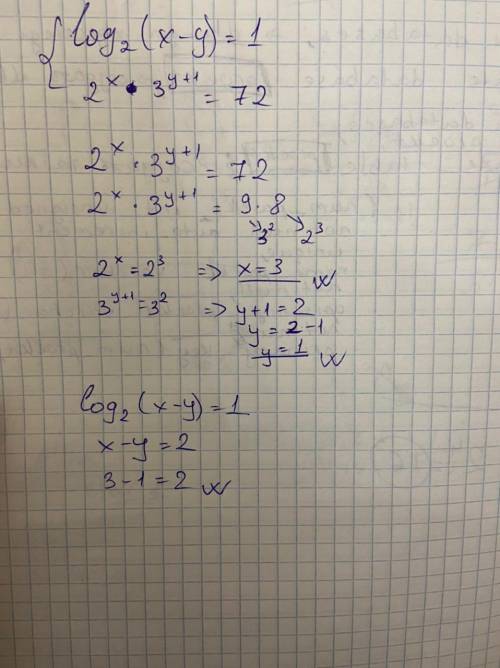 { log₂(x-y) = 1
2ˣ · 3ʸ⁺¹ = 72
2ˣ · 3ʸ⁺¹ = 72
2ˣ · 3ʸ⁺¹ = 9 · 8
↘3² ↘2³
2ˣ = 2³ => x = 3 W
3ʸ⁺¹ = 3² => y+1 = 2
y = 2-1
y = 1 W
log₂(x-y) = 1
x-y = 2
3-1 = 2 W